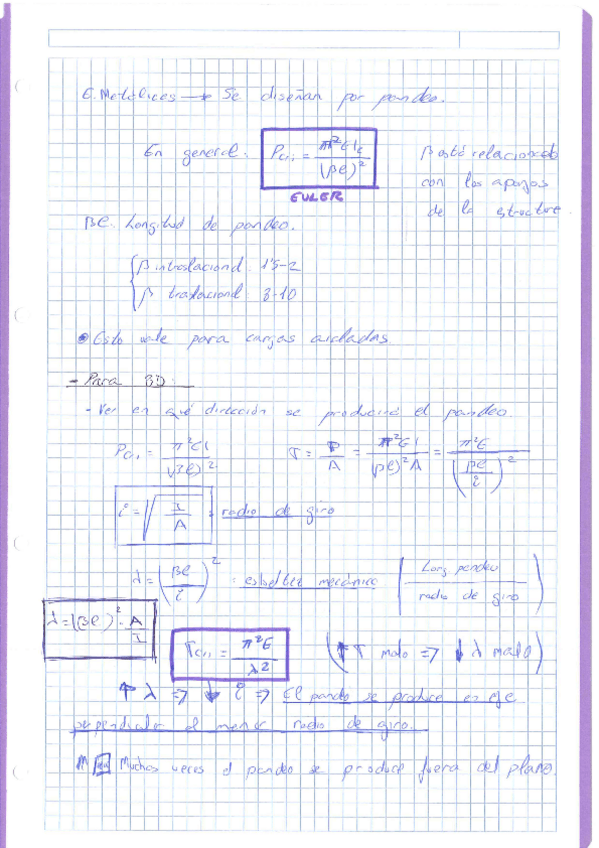 E. Metálicas → Se diseñan por pandeo.
En general: Pcri = π²EI / (βl)²
β está relacionado
con los apoyos
de la estructura.
EULER
βl: Longitud de pandeo.
β intraslacional: 1'5-2
β traslacional: 3-10
• Esto vale para cargas aisladas
- Para 3D:
- Ver en qué dirección se producirá el pandeo.
Pcri = π²EI / (βl)²
σ = P/A = π²EI / (βl)²A = π²E / (βl/i)²
i = √(I/A) : radio de giro
λ = (βl/i)² : esbeltez mecánica (Long pandeo / radio de giro)
λ = (βl)² · A/I
σcri = π²E / λ²
(↑ σ malo => ↓ λ malo)
↑ λ => ↓ i => El pandeo se produce en eje
perpendicular al menor radio de giro.
Muchas veces el pandeo se produce fuera del plano.